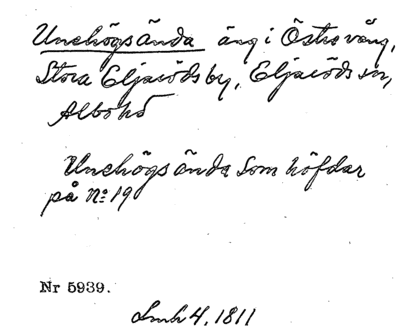 Unehögsända äng i Östra vång,
Stora Eljaröds by, Eljaröds sn,
Albo hd
Unehögs ända som höfdar
på N:o 19
Nr 5939.
Lmh 4, 1811